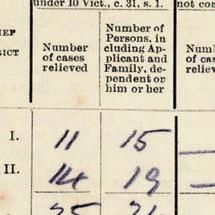 under 10 Vict., c. 31, s. 1.
not con
IEF
RICT
Number
of cases
relieved
Number of
Persons, in
cluding Ap-
plicant and
Family, de-
pendent on
him or her
Number
of cases
relieved
I. 11 15
II. 14 19